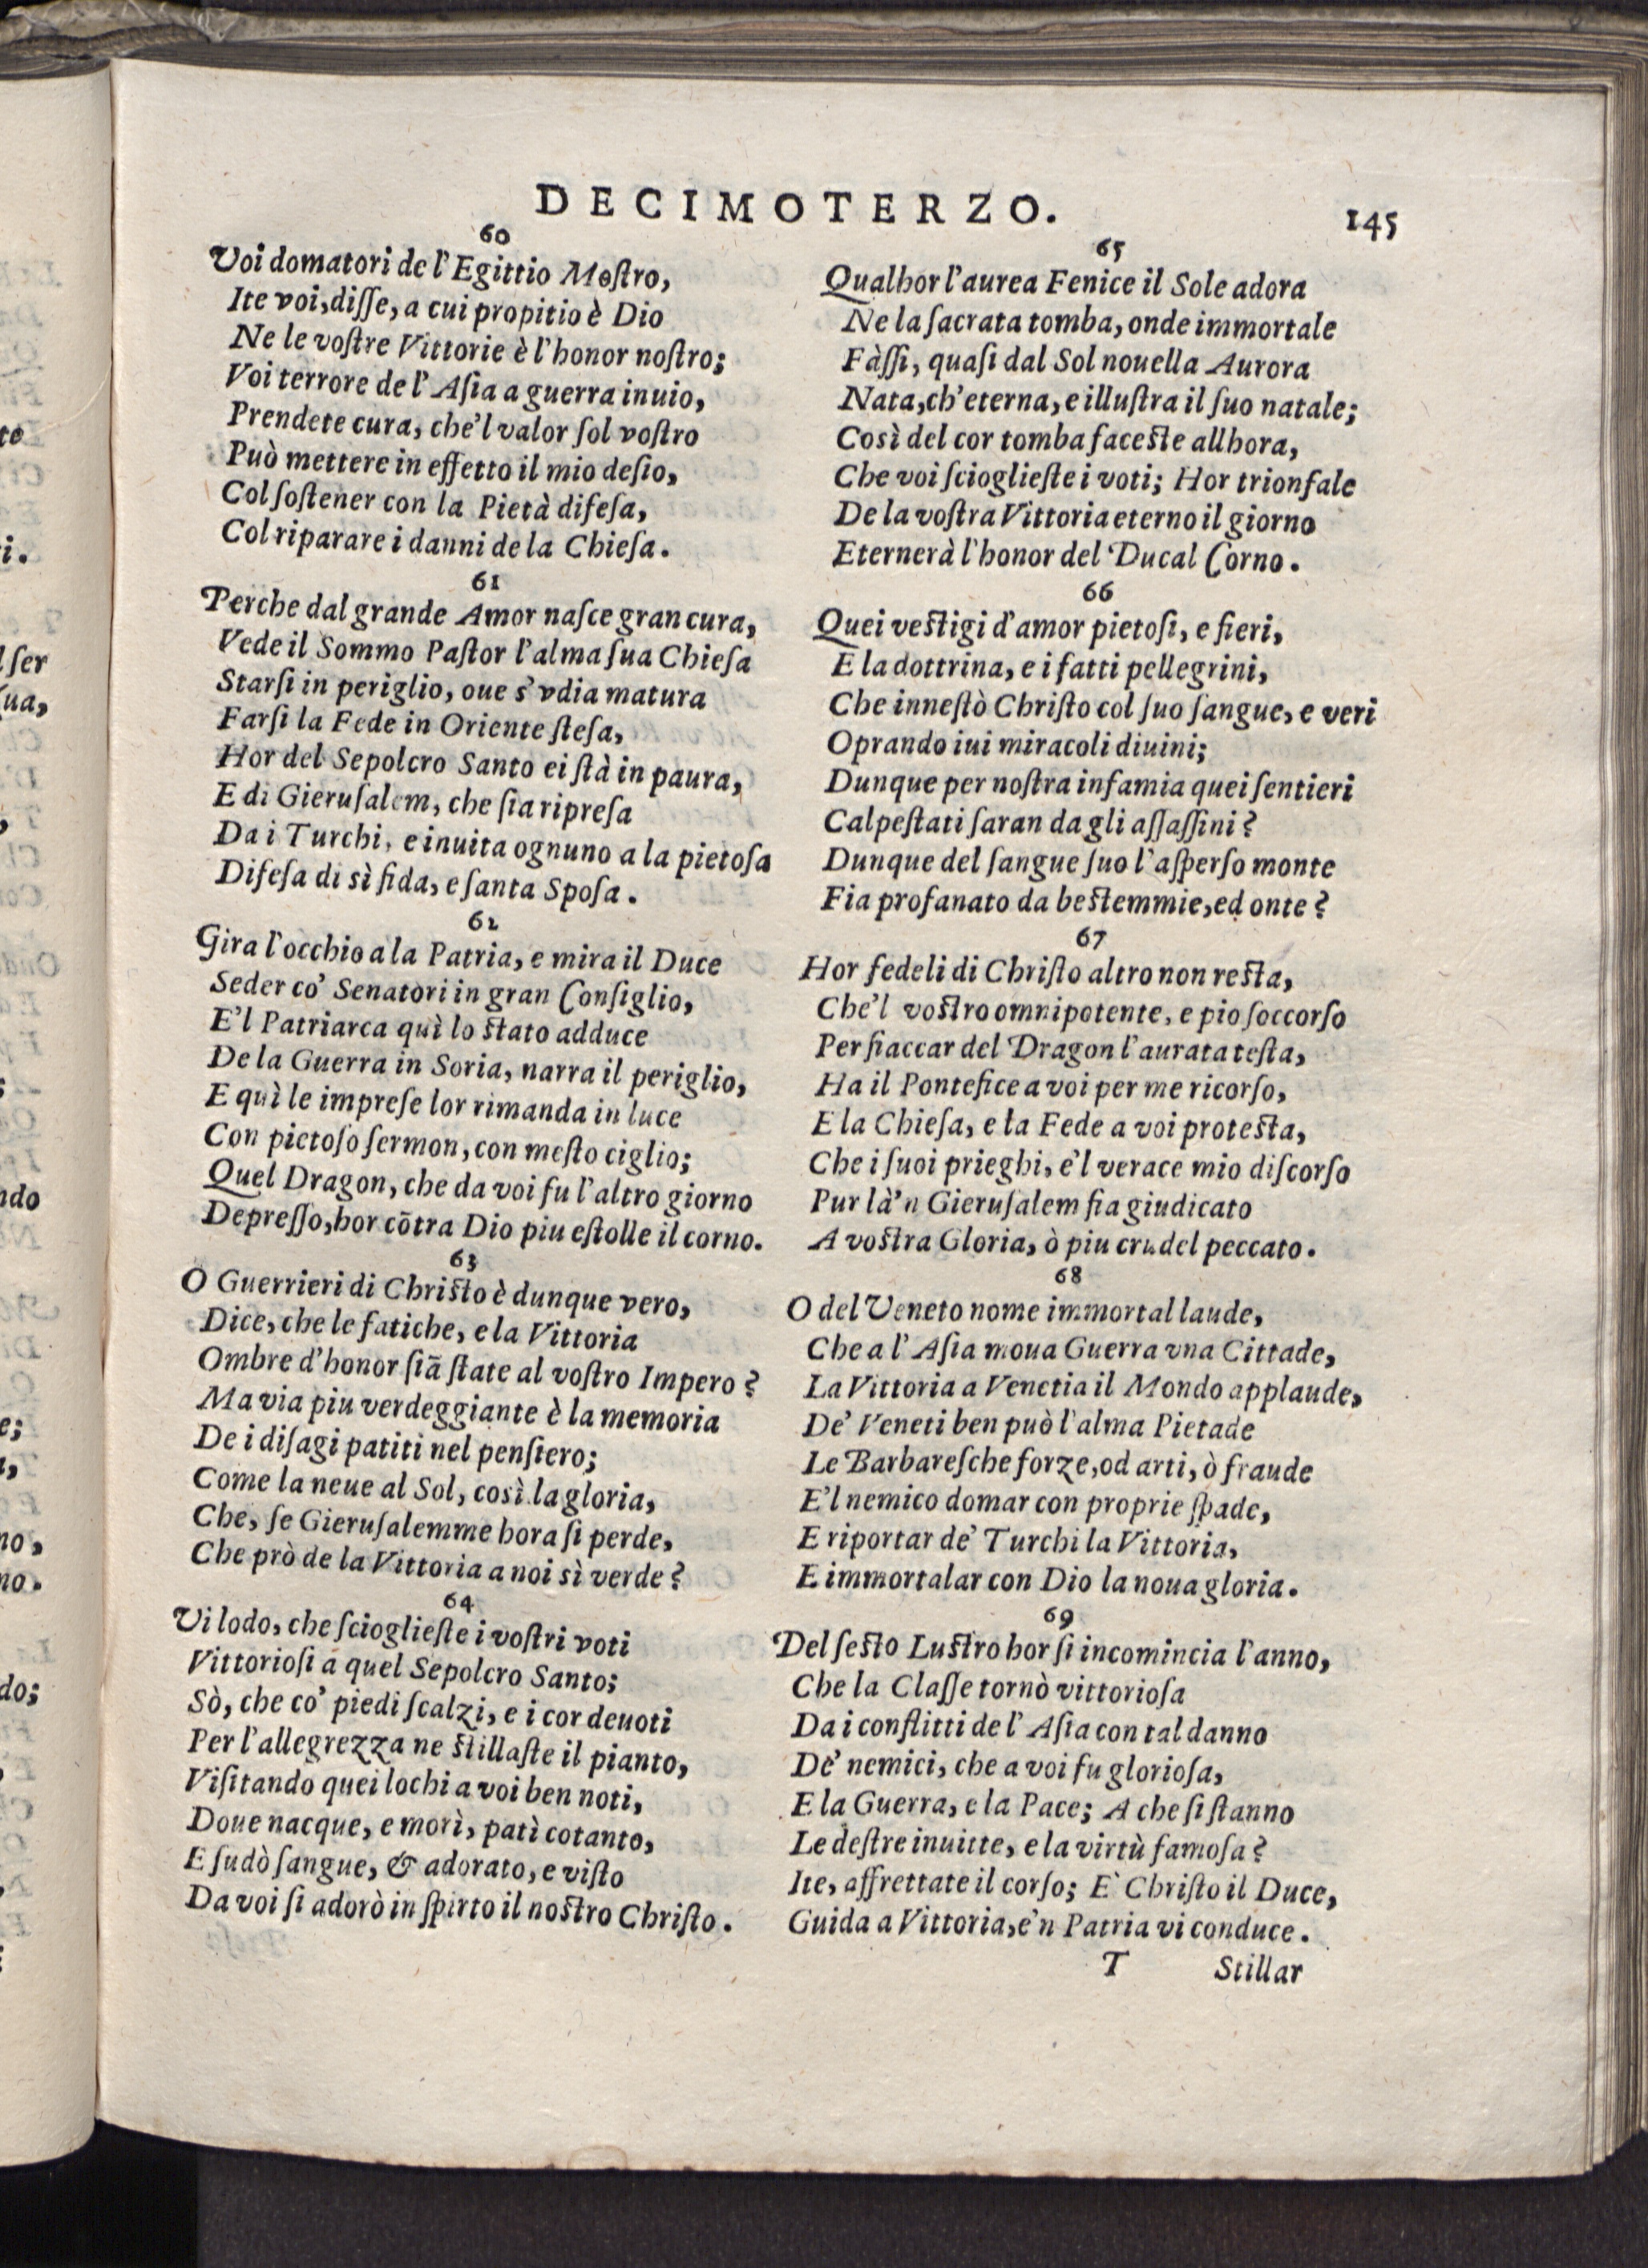 DECIMOTERZO.
145
60
Voi domatori de l'Egittio Mostro,
Ite voi, disse, a cui propitio è Dio
Ne le vostre Vittorie è l'honor nostro;
Voi terrore de l'Asia a guerra inuio,
Prendete cura, che'l valor sol vostro
Può mettere in effetto il mio desio,
Col sostener con la Pietà difesa,
Col riparare i danni de la Chiesa.
61
Perche dal grande Amor nasce gran cura,
Vede il Sommo Pastor l'alma sua Chiesa
Starsi in periglio, oue s'vdia matura
Farsi la Fede in Oriente stesa,
Hor del Sepolcro Santo ei stà in paura,
E di Gierusalem, che sia ripresa
Da i Turchi, e inuita ognuno a la pietosa
Difesa di sì fida, e santa Sposa.
62
Gira l'occhio a la Patria, e mira il Duce
Seder co' Senatori in gran Consiglio,
E'l Patriarca quì lo stato adduce
De la Guerra in Soria, narra il periglio,
E quì le imprese lor rimanda in luce
Con pietoso sermon, con mesto ciglio;
Quel Dragon, che da voi fu l'altro giorno
Depresso, hor cōtra Dio piu estolle il corno.
63
O Guerrieri di Christo è dunque vero,
Dice, che le fatiche, e la Vittoria
Ombre d'honor siā state al vostro Impero?
Ma via piu verdeggiante è la memoria
De i disagi patiti nel pensiero;
Come la neue al Sol, così la gloria,
Che, se Gierusalemme hora si perde,
Che prò de la Vittoria a noi sì verde?
64
Vi lodo, che scioglieste i vostri voti
Vittoriosi a quel Sepolcro Santo;
Sò, che co' piedi scalzi, e i cor deuoti
Per l'allegrezza ne stillaste il pianto,
Visitando quei lochi a voi ben noti,
Doue nacque, e morì, patì cotanto,
E sudò sangue, & adorato, e visto
Da voi si adorò in spirto il nostro Christo.
65
Qualhor l'aurea Fenice il Sole adora
Ne la sacrata tomba, onde immortale
Fàssi, quasi dal Sol nouella Aurora
Nata, ch'eterna, e illustra il suo natale;
Così del cor tomba faceste allhora,
Che voi scioglieste i voti; Hor trionfale
De la vostra Vittoria eterno il giorno
Eternerà l'honor del Ducal Corno.
66
Quei vestigi d'amor pietosi, e fieri,
E la dottrina, e i fatti pellegrini,
Che innestò Christo col suo sangue, e veri
Oprando iui miracoli diuini;
Dunque per nostra infamia quei sentieri
Calpestati saran da gli assassini?
Dunque del sangue suo l'asperso monte
Fia profanato da bestemmie, ed onte?
67
Hor fedeli di Christo altro non resta,
Che'l vostro omnipotente, e pio soccorso
Per fiaccar del Dragon l'aurata testa,
Ha il Pontefice a voi per me ricorso,
E la Chiesa, e la Fede a voi protesta,
Che i suoi prieghi, e'l verace mio discorso
Pur là'n Gierusalem fia giudicato
A vostra Gloria, ò piu crudel peccato.
68
O del Veneto nome immortal laude,
Che a l'Asia moua Guerra vna Cittade,
La Vittoria a Venetia il Mondo applaude,
De' Veneti ben può l'alma Pietade
Le Barbaresche forze, od arti, ò fraude
E'l nemico domar con proprie spade,
E riportar de' Turchi la Vittoria,
E immortalar con Dio la noua gloria.
69
Del sesto Lustro hor si incomincia l'anno,
Che la Classe tornò vittoriosa
Da i conflitti de l'Asia con tal danno
De' nemici, che a voi fu gloriosa,
E la Guerra, e la Pace; A che si stanno
Le destre inuitte, e la virtù famosa?
Ite, affrettate il corso; E' Christo il Duce,
Guida a Vittoria, e'n Patria vi conduce.
T Stillar